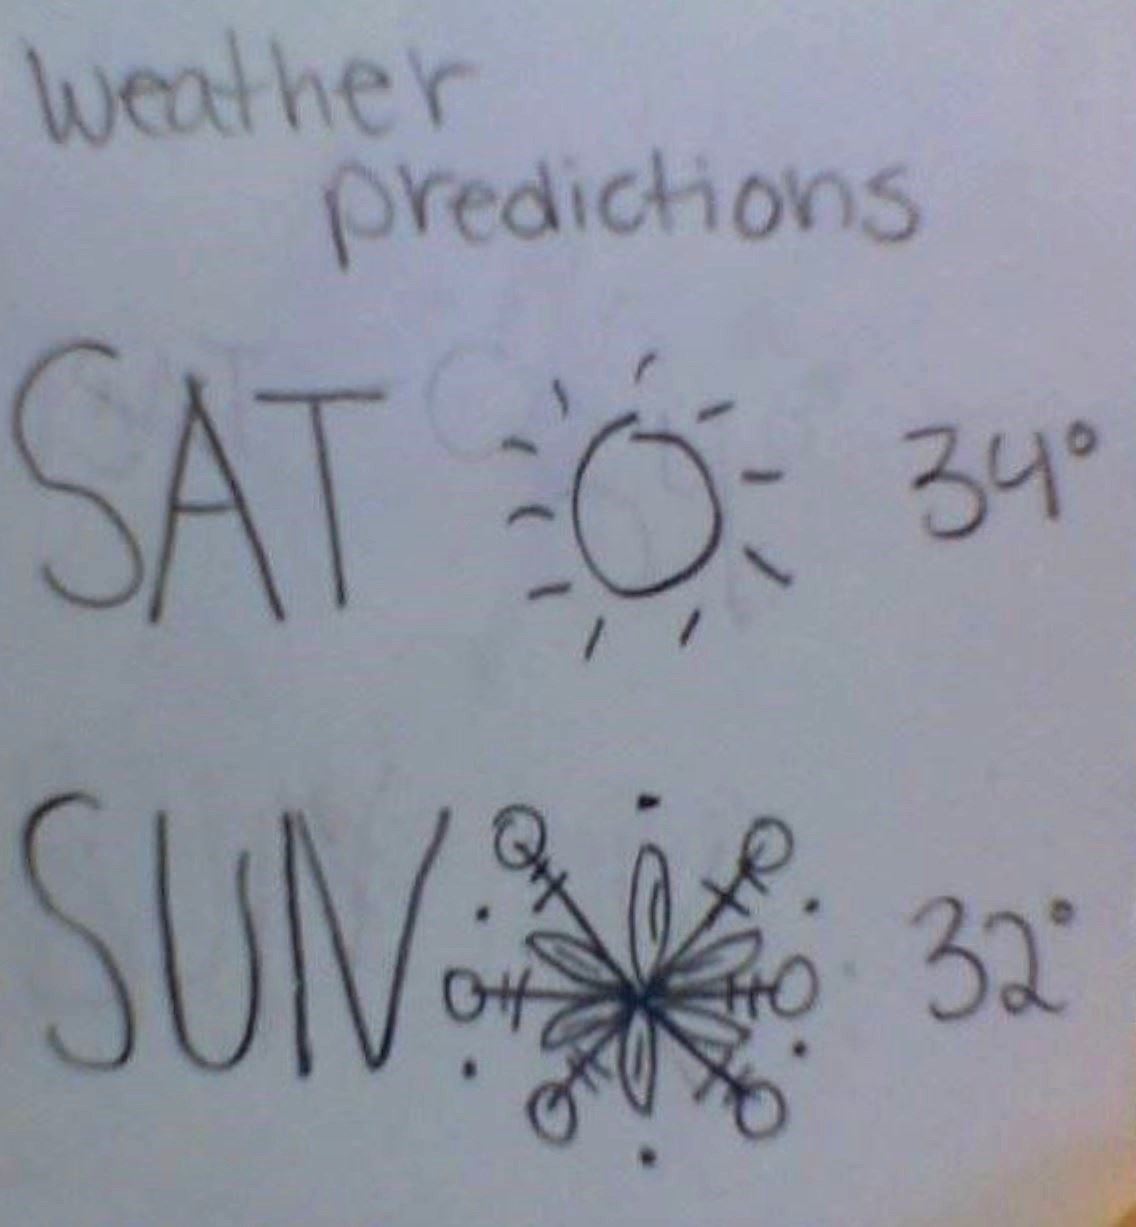 weather
predictions
SAT 34°
SUN 32°